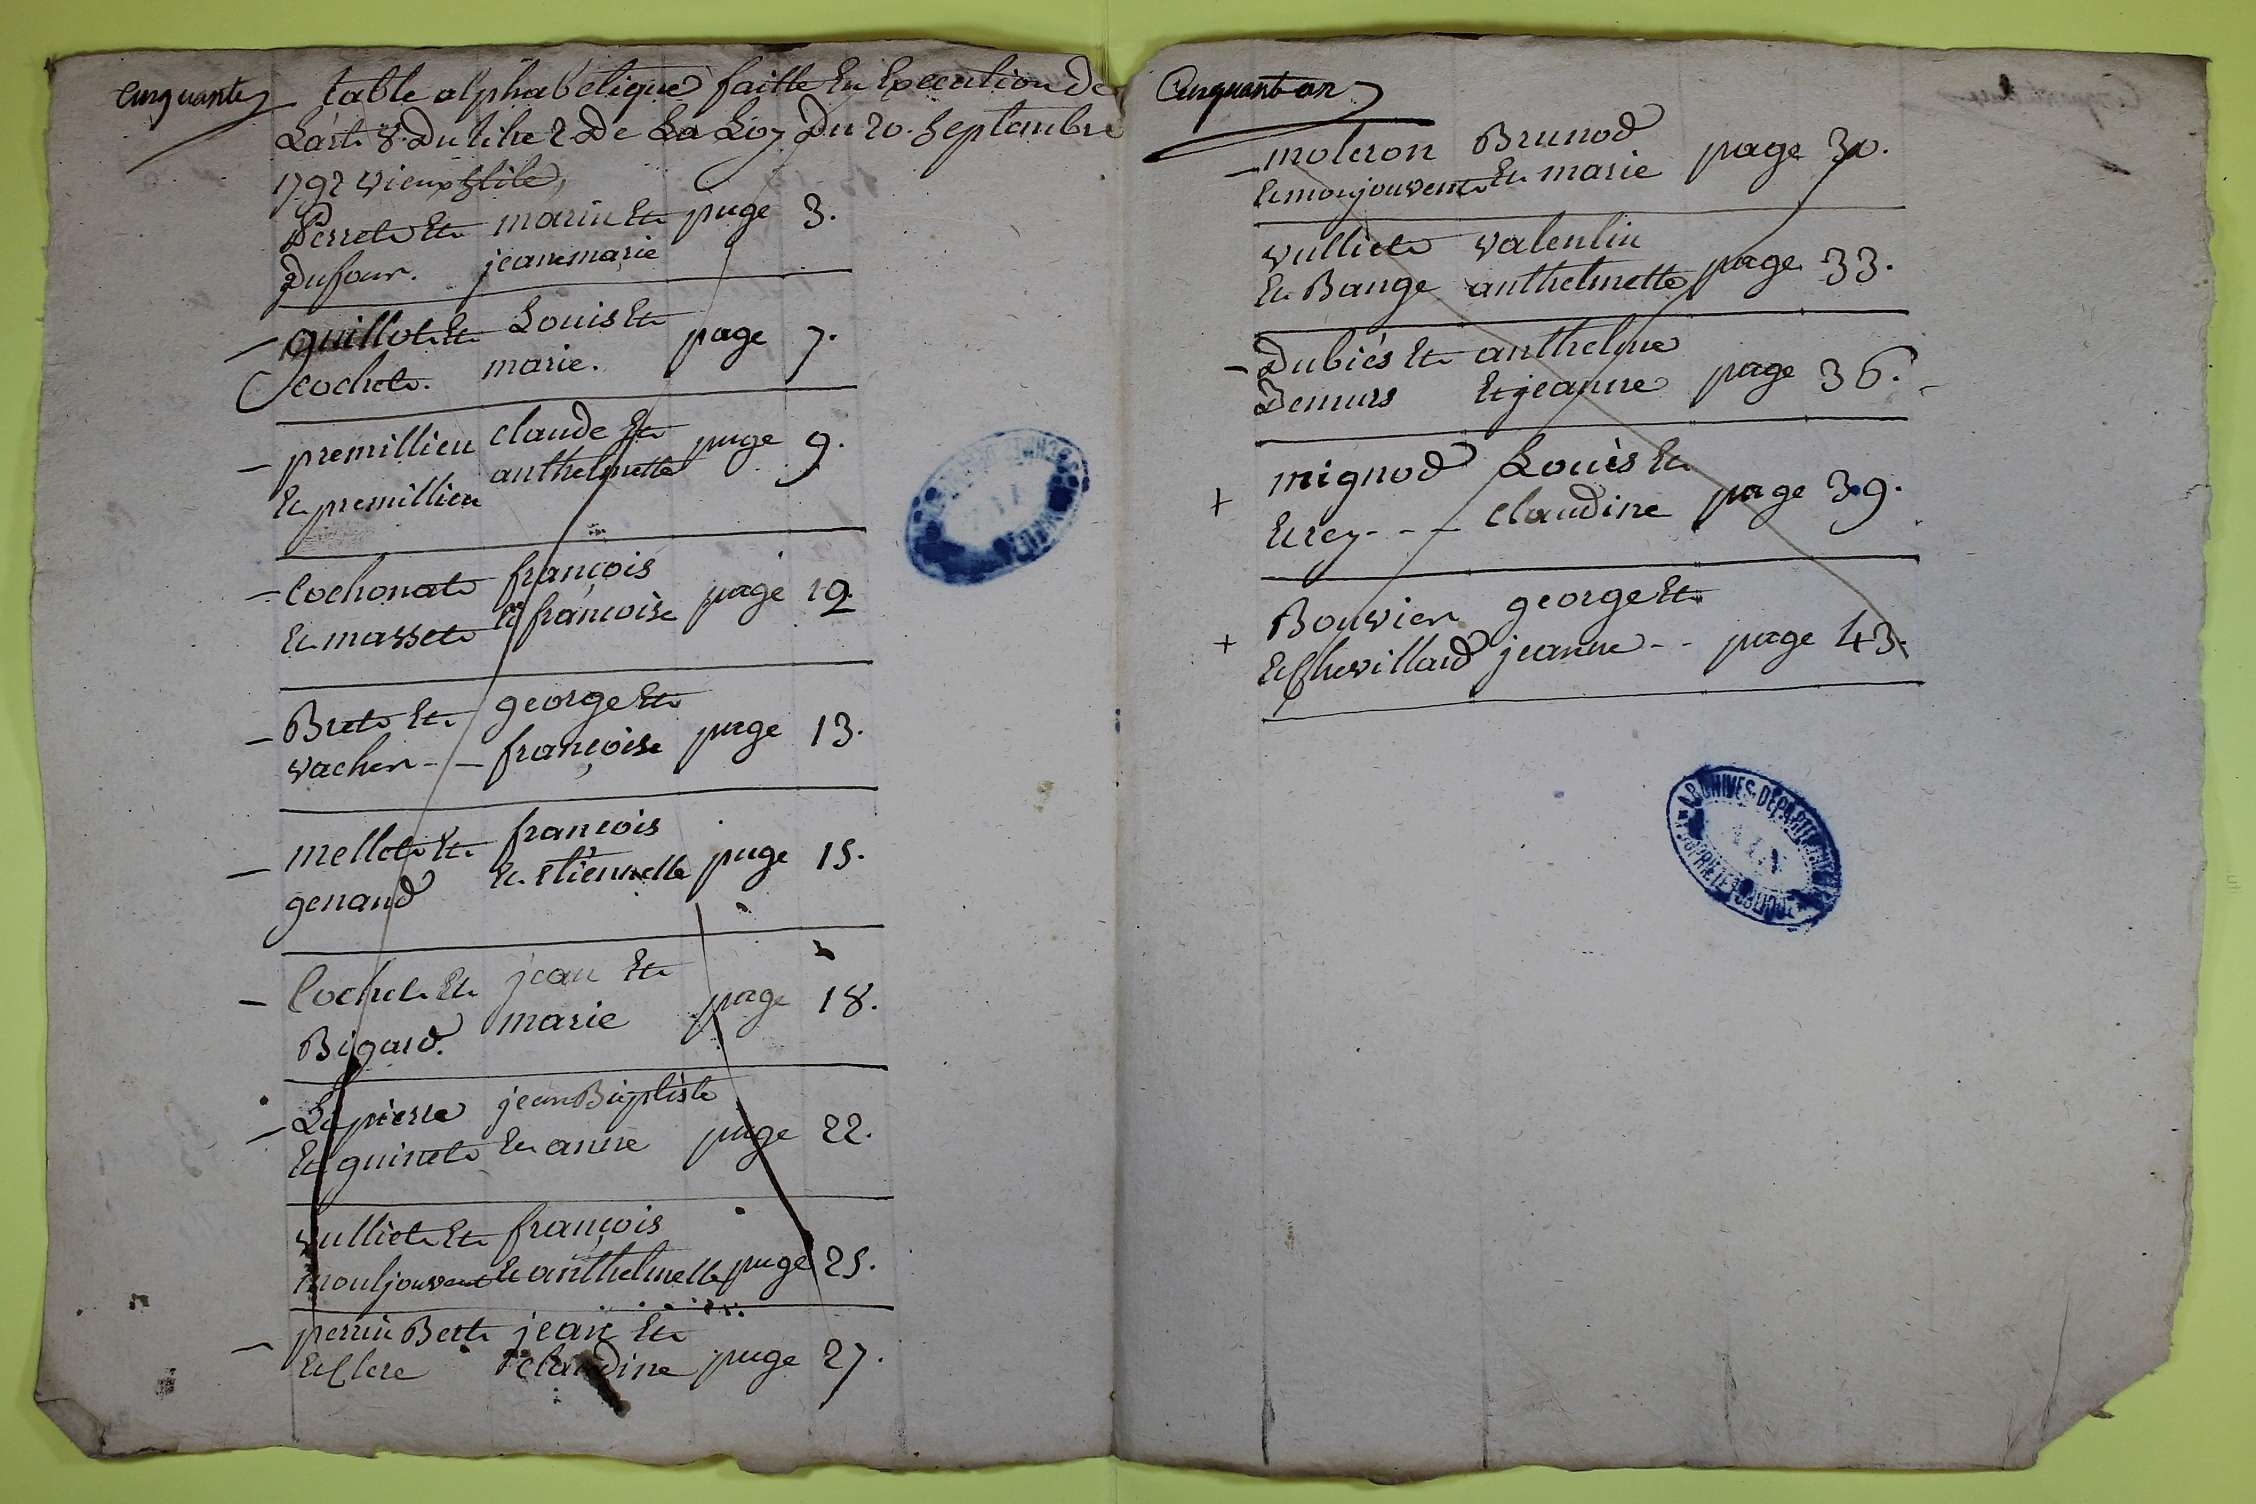 Cinquante table alphabétique faitte En Execution de
L'art. 8. Du titre 2 De La Loy Du 20. Septembre
1792 vieux stile,
Perret Et marin Et page 3.
Dufour. jeanemarie
guillot Et Louis Et page 7.
Cochet. marie.
premillieu claude Et page 9.
Et premillieu anthelmette
Cochonat françois page 12.
Et masset Et françoise
Bret Et george Et page 13.
vacher - - françoise
mellet Et françois page 15.
genand Et Etiennette
Cochet Et jean Et page 18.
Bigard. marie
Lapierre jean Baptiste page 22.
Et guinet Et anne
vulliet Et françois
montjouvent Et anthelmette page 25.
perrin Bert jean Et page 27.
Et Clere claudine
Cinquant un
moleron Brunod page 30.
Et monjouvent Et marie
vulliet valentin page 33.
Et Bange anthelmette
Dubiés Et anthelme page 36.
Demurs Et jeanne
mignod Louis Et page 39.
Et rey - - - claudine
Bouvier george Et page 43.
Et Chevillard jeanne - -
ARCHIVES DÉPARTEMENTALES
AIN
PROPRIÉTÉ PUBLIQUE